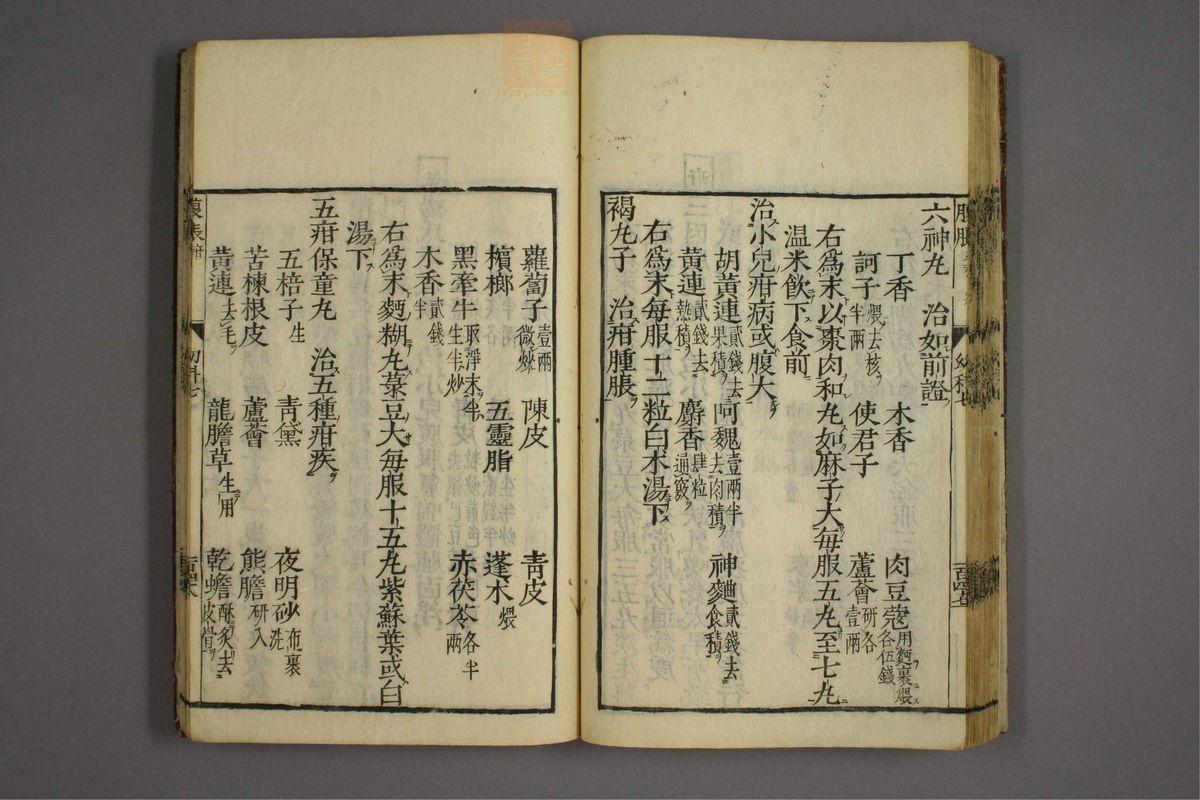 六神丸　治如前證
丁香　木香　肉豆蔻用麵裹煨各伍錢
訶子煨去核半兩　使君子　蘆薈研各壹兩
右爲末以棗肉和丸如麻子大每服五丸至七丸
溫米飲下食前
治小兒疳病或腹大
胡黃連貳錢去果積　阿魏壹兩半去肉積　神麯貳錢去食積
黃連貳錢去熱積　麝香肆粒通竅
右爲末每服十二粒白朮湯下
褐丸子　治疳腫脹
蘿蔔子壹兩微炒　陳皮　青皮
檳榔　五靈脂　蓬朮煨
黑牽牛取淨末半生半炒　赤茯苓各半兩
木香貳錢半
右爲末麵糊丸菉豆大每服十五丸紫蘇葉或白
湯下
五疳保童丸　治五種疳疾
五棓子生　青黛　夜明砂布裹洗
苦楝根皮　蘆薈　熊膽研入
黃連去毛　龍膽草生用　乾蟾酥炙去皮骨